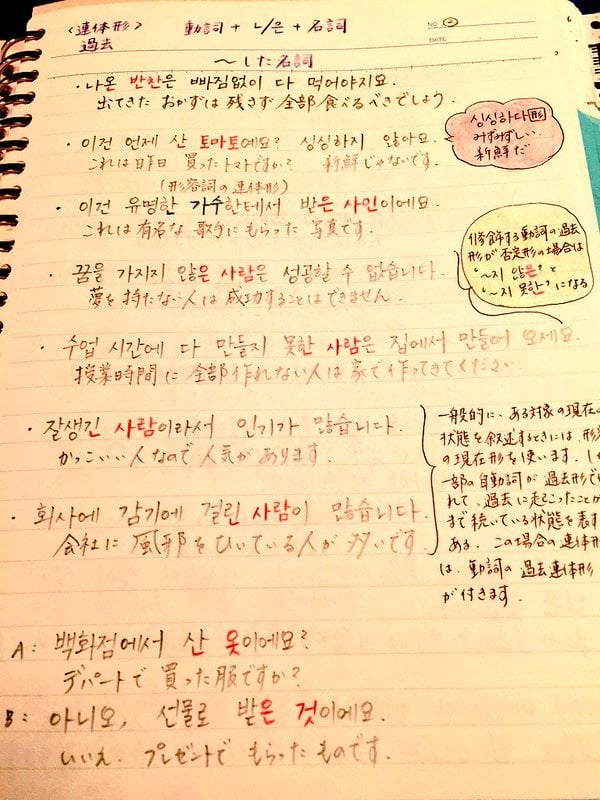 〈連体形〉
過去
動詞 + ㄴ/은 + 名詞
NO ②
DATE
～した名詞
・나온 반찬은 빠짐없이 다 먹어야지요.
出てきた おかずは 残さず 全部 食べるべきでしょう.
・이건 언제 산 토마토예요? 싱싱하지 않아요.
これは 昨日 買ったトマトですか? 新鮮じゃないです.
싱싱하다 形
みずみずしい.
新鮮だ
(形容詞の連体形)
・이건 유명한 가수한테서 받은 사인이에요.
これは 有名な 歌手に もらった 写真です.
修飾する動詞の過去
形が 否定形の場合は
"～지 않은" と
"～지 못한" になる
・꿈을 가지지 않은 사람은 성공할 수 없습니다.
夢を 持たない 人は 成功することは できません.
・수업 시간에 다 만들지 못한 사람은 집에서 만들어 오세요.
授業時間に 全部 作れない人は 家で 作ってきてください
・잘생긴 사람이라서 인기가 많습니다.
かっこいい 人なので 人気が あります.
・회사에 감기에 걸린 사람이 많습니다.
会社に 風邪をひいている 人が 多いです
一般的に、ある対象の現在の
状態を叙述するときには、形
の現在形を使います. し
一部の自動詞が 過去形で
れて、過去に起こったことが
まで続いている状態を表す
ある. この場合の連体形
は、動詞の過去連体形
が付きます.
A: 백화점에서 산 옷이에요?
デパートで 買った服ですか?
B: 아니요, 선물로 받은 것이에요.
いいえ. プレゼントで もらったものです.